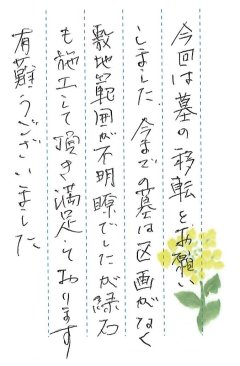 今回は墓の移転をお願い
しました。今までの墓は区画がなく
敷地範囲が不明瞭でしたが縁石
も施工して頂き満足しております
有難うございました